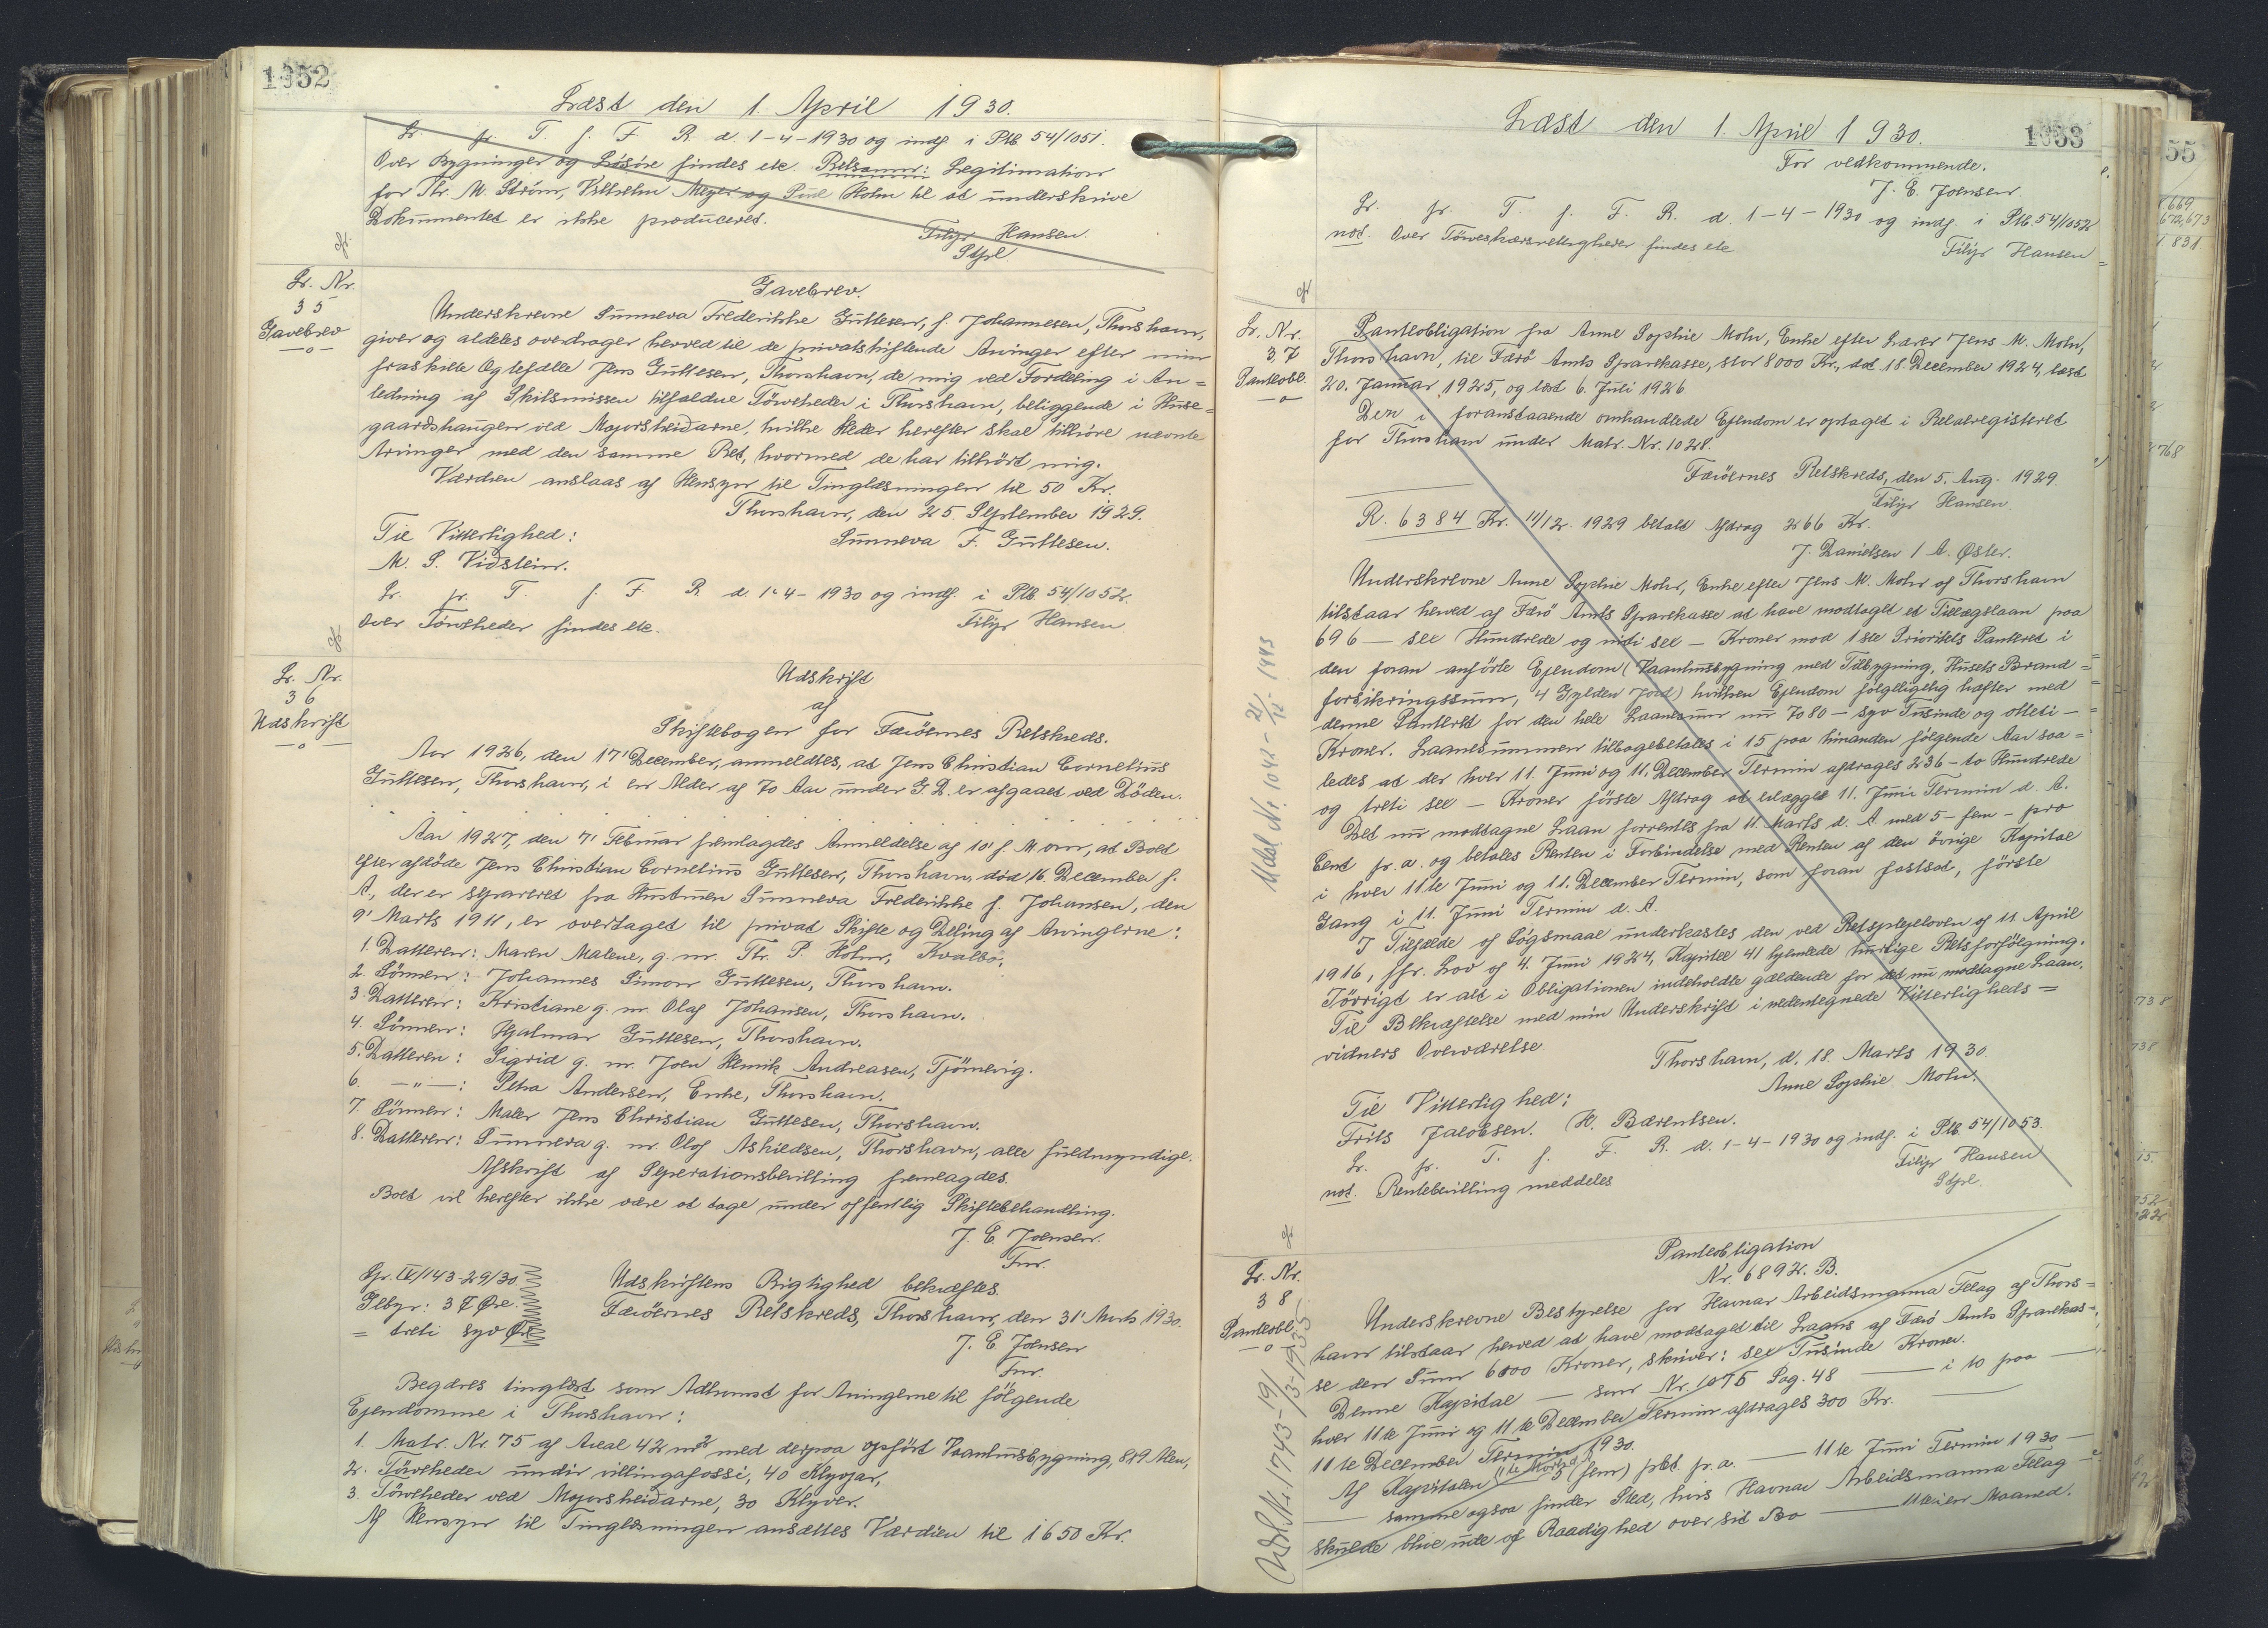 1052
Læst den 1. April 1930.
Lr. fr. T. f. F. R. d. 1-4-1930 og indf. i Plb. 54/1051.
Over Bygninger og Løsøre findes ete. Retsanm: Legitimation
for Thr. M. Ström, Vilhelm Meyer og Holm til at underskrive
Dokumentet er ikke produceret.
Filip Hansen.
Stfd.
Lr. Nr.
35
Gavebrev
Gavebrev.
Underskrevne Sunneva Frederikke Guttesen, f. Johannesen, Thorshavn,
giver og aldeles overdrager herved til de privatskiftende Arvinger efter min
fraskilte Ægtefælle Jens Guttesen, Thorshavn, de mig ved Fordeling i An=
ledning af Skilsmissen tilfaldne Törveheder i Thorshavn, beliggende i Huse=
gaardshaugen ved Majorsheiðarne, hvilke Heder herefter skal tilhöre nævnte
Arvinger med den samme Ret, hvormed de har tilhört mig.
Værdien anslaas af Hensyn til Tinglæsningen til 50 Kr.
Thorshavn, den 25. September 1929.
Til Vitterlighed:
Sunneva F. Guttesen.
M. S. Viðstein.
Lr. fr. T. f. F. R. d. 1-4-1930 og indf. i Plb. 54/1052.
Over Törveheder findes ete.
Filip Hansen
Lr. Nr.
36
Udskrift
Udskrift
af
Skiftebogen for Færöernes Retskreds.
Aar 1926, den 17' December, anmeldtes, at Jens Christian Cornelius
Guttesen, Thorshavn, i en Alder af 70 Aar under G. D. er afgaaet ved Döden.
Aar 1927, den 7' Februar fremlagdes Anmeldelse af 10' f. M. om, at Boet
efter afdöde Jens Christian Cornelius Guttesen, Thorshavn, död 16. December f.
A., der er separeret fra Hustruen Sunneva Frederikke f. Johansen, den
9' Marts 1911, er overtaget til privat Skifte og Deling af Arvingerne:
1. Datteren: Maren Malene, g. m. Thr. P. Holm, Kvalbø,
2. Sönnen: Johannes Simon Guttesen, Thorshavn.
3. Datteren: Kristiane g. m. Olaf Johansen, Thorshavn.
4. Sönnen: Hjalmar Guttesen, Thorshavn.
5. Datteren: Sigrid g. m. Joen Henrik Andreasen, Tjörnevig.
6. —"—: Petra Andersen, Enke, Thorshavn.
7. Sönnen: Maler Jens Christian Guttesen, Thorshavn.
8. Datteren: Sunneva g. m. Olof Askildsen, Thorshavn, alle fuldmyndige.
Afskrift af Seperationsbevilling fremlagdes.
Boet vil herefter ikke være at tage under offentlig Skiftebehandling.
J. E. Joensen.
Fm.
Spr. IV/143-29/30
Gebyr: 37 Øre.
= treti syv Øre
Udskriftens Rigtighed bekræftes.
Færöernes Retskreds, Thorshavn, den 31' Marts 1930.
J. E. Joensen
Fm.
Begæres tinglæst som Adkomst for Arvingerne til fölgende
Ejendomme i Thorshavn:
1. Matr. Nr. 75 af Areal 42 m² med derpaa opfört Vaanhusbygning, 8x9 Alen,
2. Törveheder undir villingafossi, 40 Klyvjar,
3. Törveheder ved Majorsheiðarne, 30 Klyver.
Af Hensyn til Tinglæsningen ansættes Værdien til 1650 Kr.
Læst den 1. April 1930.
1053
For vedkommende.
J. E. Joensen
Lr. fr. T. f. F. R. d. 1-4-1930 og indf. i Plb. 54/1052
not. Over Törveskærsrettigheder findes ete
Filip Hansen
Lr. Nr.
37
Panteobl.
Panteobligation fra Anne Sophie Mohr, Enke efter Lærer Jens M. Mohr,
Thorshavn, til Færö Amts Sparekasse, stor 8000 Kr., dat. 18. December 1924, læst
20. Januar 1925, og læst 6. Juli 1926.
Den i foranstaaende omhandlede Ejendom er optaget i Realregisteret
for Thorshavn under Matr. Nr. 1028.
Færöernes Retskreds, den 5. Aug. 1929.
Filip Hansen
R. 6384 Kr. 11/12. 1929 betalt Afdrag 266 Kr.
J. Danielsen / A. Øster.
Underskrevne Anne Sophie Mohr, Enke efter Jens M. Mohr af Thorshavn
tilstaar herved af Færö Amts Sparekasse at have modtaget et Tillægslaan paa
696 — sex Hundrede og niti sex — Kroner mod 1ste Prioritets Panteret i
den foran anförte Ejendom (Vaanhusbygning med Tilbygning, Husets Brand=
forsikringssum, 4 Gylden Jord) hvilken Ejendom fölgeligelig hæfter med
denne Panteret for den hele Laanesum nu 7080 — syv Tusinde og otteti —
Kroner. Laanesummen tilbagebetales i 15 paa hinanden fölgende Aar saa=
ledes at der hver 11. Juni og 11. December Termin afdrages 236 - to Hundrede
og treti sex — Kroner förste Afdrag at erlægges 11. Juni Termin d. A.
Det nu modtagne Laan forrentes fra 11. Marts d. A. med 5 - fem - pro
Cent pr. a. og betales Renten i Forbindelse med Renten af den övrige Kapital
i hver 11te Juni og 11. December Termin, som foran fastsat, förste
Gang i 11. Juni Termin d. A.
I Tilfælde af Sögsmaal underkastes den ved Retsplejeloven af 11. April
1916, jfr. Lov af 4. Juni 1924, Kapitel 41 hjemlede hurtige Retsforfölgning.
Iövrigt er alt i Obligationen indeholdte gældende for det nu modtagne Laan.
Til Bekræftelse med min Underskrift i nedentegnede Vitterligheds=
vidners Overværelse
Thorshavn, d. 18. Marts 1930.
Anne Sophie Mohr.
Til Vitterlighed:
Frits Jacobsen. H. Bærentsen.
Lr. fr. T. f. F. R. d. 1-4-1930 og indf. i Plb. 54/1053.
not. Rentebevilling meddeles
Filip Hansen
Stfd.
Udsl. Nr. 1042 - 21/12 - 1943
Lr. Nr.
38
Panteobl.
Panteobligation
Nr. 6892. B.
Underskrevne Bestyrelse for Havnar Arbeiðsmanna Felag af Thors=
havn tilstaar herved at have modtaget til Laans af Færö Amts Sparekas=
se den Sum 6000 Kroner, skriver: sex Tusinde Kroner.
Denne Kapital — som Nr. 1075 Pag. 48 — i 10 paa —
hver 11te Juni og 11te December Termin afdrages 300 Kr.
11te December Termin 1930.
Af Kapitalen 5 (fem) pCt. pr. a. — 11te Juni Termin 1930 —
— samme ogsaa finder Sted, hvis Havnar Arbeiðsmanna Felag —
skulde blive ude af Raadighed over sit Bo — Maaned.
Udsl. Nr. 1743-19/3-1935
55
669
672,673
831
768
738
738
15.
952